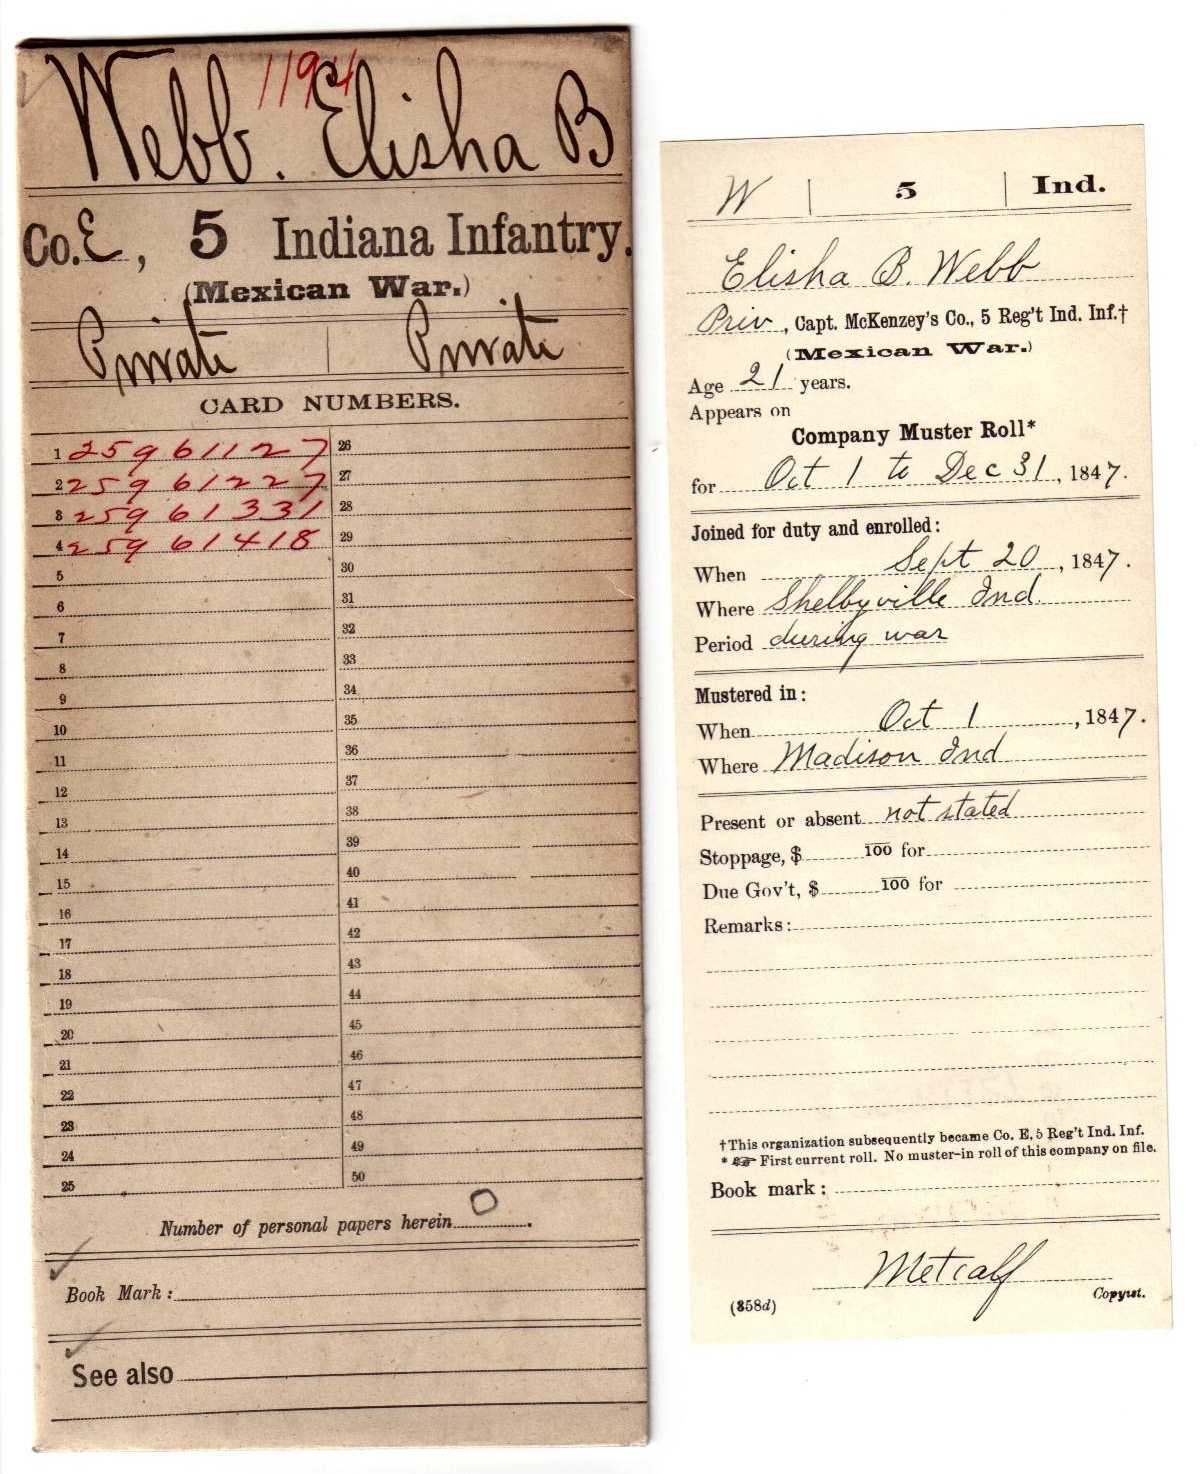 1194
Webb. Elisha B
Co. E, 5 Indiana Infantry.
(Mexican War.)
Private Private
CARD NUMBERS.
1 25961127 26
2 25961227 27
3 25961331 28
4 25961418 29
5 30
6 31
7 32
8 33
9 34
10 35
11 36
12 37
13 38
14 39
15 40
16 41
17 42
18 43
19 44
20 45
21 46
22 47
23 48
24 49
25 50
Number of personal papers herein 0.
Book Mark:
See also
W | 5 | Ind.
Elisha B. Webb
Priv, Capt. McKenzey's Co., 5 Reg't Ind. Inf.†
(Mexican War.)
Age 21 years.
Appears on
Company Muster Roll*
for Oct 1 to Dec 31, 1847.
Joined for duty and enrolled:
When Sept 20, 1847.
Where Shelbyville Ind.
Period during war
Mustered in:
When Oct 1, 1847.
Where Madison Ind
Present or absent not stated
Stoppage, $ 100 for
Due Gov't, $ 100 for
Remarks:
†This organization subsequently became Co. E, 5 Reg't Ind. Inf.
* ☞ First current roll. No muster-in roll of this company on file.
Book mark:
Metcalf
(358d) Copyist.